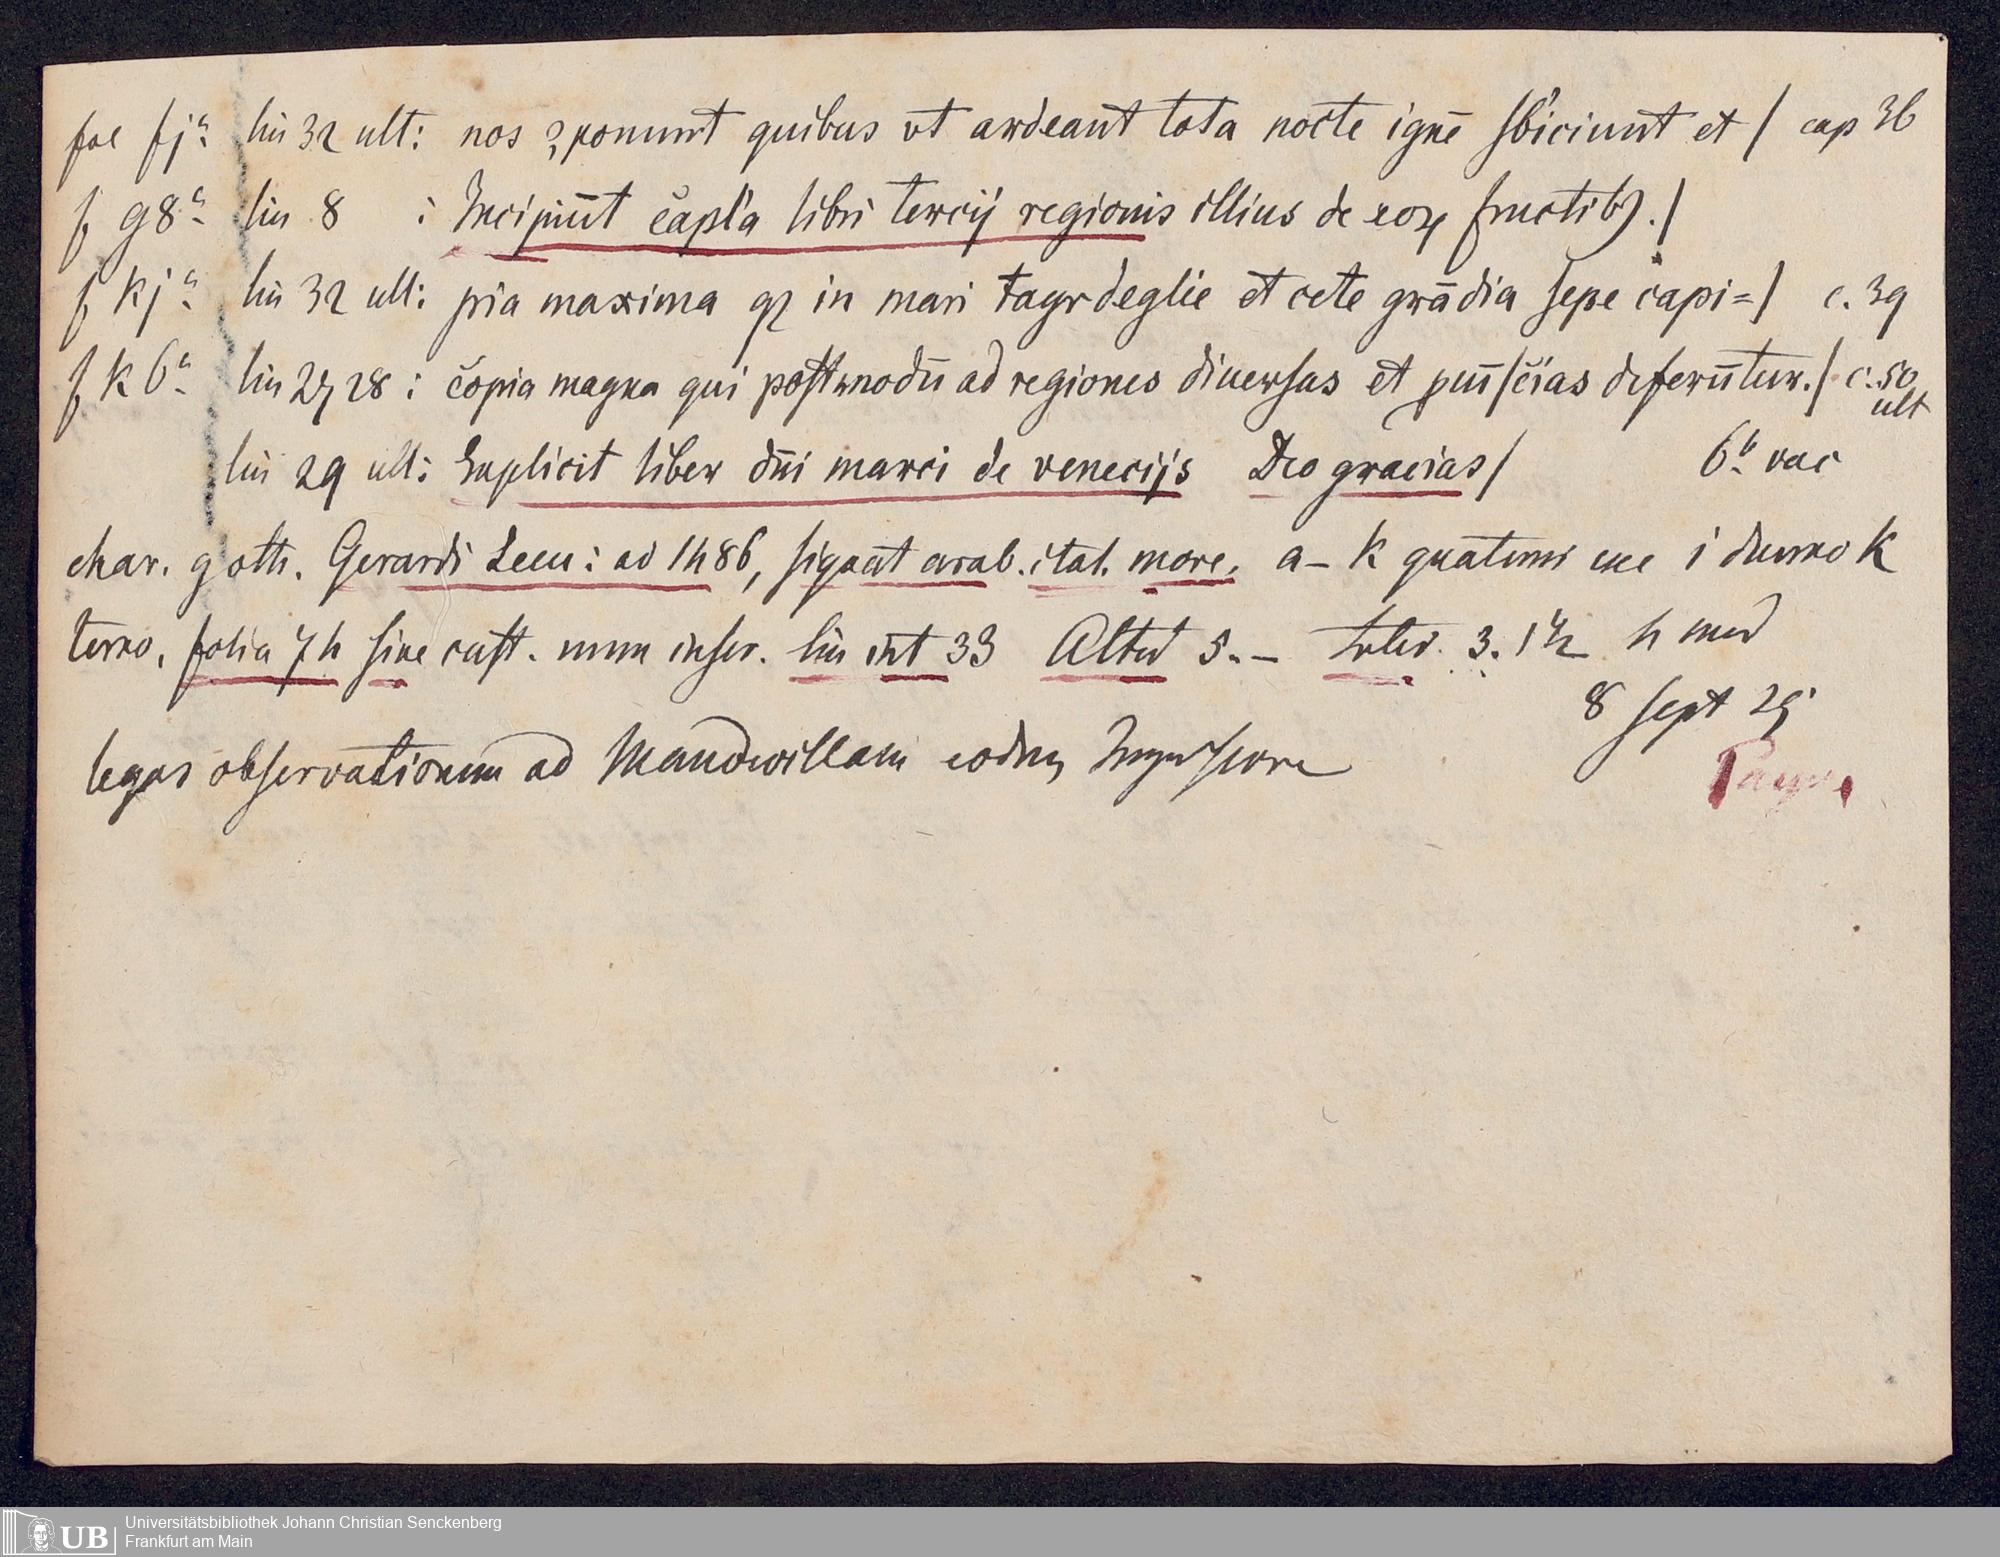 fol fjᵃ lin 32 ult: nos ꝯponunt quibus vt ardeant tota nocte ignē sbiciunt et / cap 36
f g8ᵃ lin 8 : Incipiūt capl'a libri tercij regionis illius de eoꝝ fructibꝫ./
f kjᵃ lin 32 ult: pria maxima qꝫ in mari fayrdeglie et cete grādia sepe capi=/ c. 39
f k 6ᵃ lin 27 28 : copia magna qui postmodū ad regiones diuersas et ꝓuīcias deferūtur./ c. 50
ult
lin 29 ult: Explicit liber dn̄i marci de venecijs Deo gracias/ 6ᵇ vac
char. goth. Gerardi Leeu: ad 1486, signat arab. ital. more, a – k quaterni duerno k
terno, folia 74 sine cust. num inscr. lin int 33 Altit 5. – 3. 1½ 4 med
8 sept 29
legas observationem ad Mandevillam